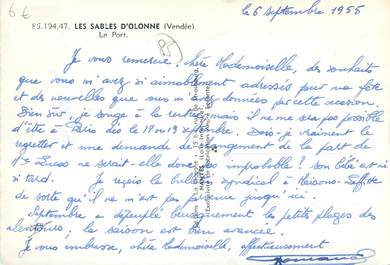 6€
le 6 septembre 1955
85.194.47. LES SABLES D'OLONNE (Vendée).
Le Port.
85
Je vous remercie, chère Mademoiselle, des souhaits
que vous m'avez si aimablement adressés pour ma fête
et des nouvelles que vous m'avez données par cette occasion.
Bien sûr, je songe à la rentrée mais il ne me sera pas possible
d'être à Paris dès le 18 ou 19 septembre. Dois-je vraiment le
regretter et une demande de changement de la part de
Lucas ne serait-elle donc pas improbable ? son bébé est né
si tard. Je reçois le bulletin syndical à Maisons-Laffitte
de sorte qu'il ne m'est pas parvenu jusqu'ici.
Septembre a dépeuplé brusquement les petites plages des
alentours ; la saison est bien avancée.
Je vous embrasse, chère Mademoiselle, affectueusement
NANTES